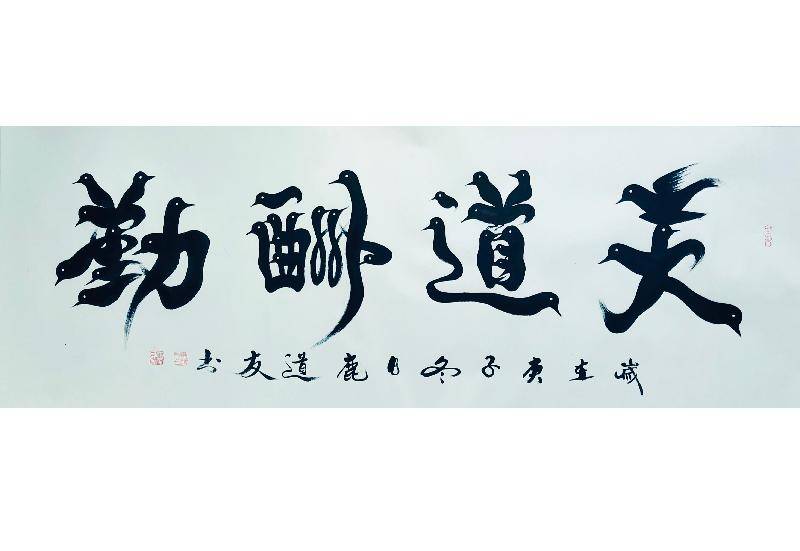 天道酬勤
岁在庚子冬日鹿道友书